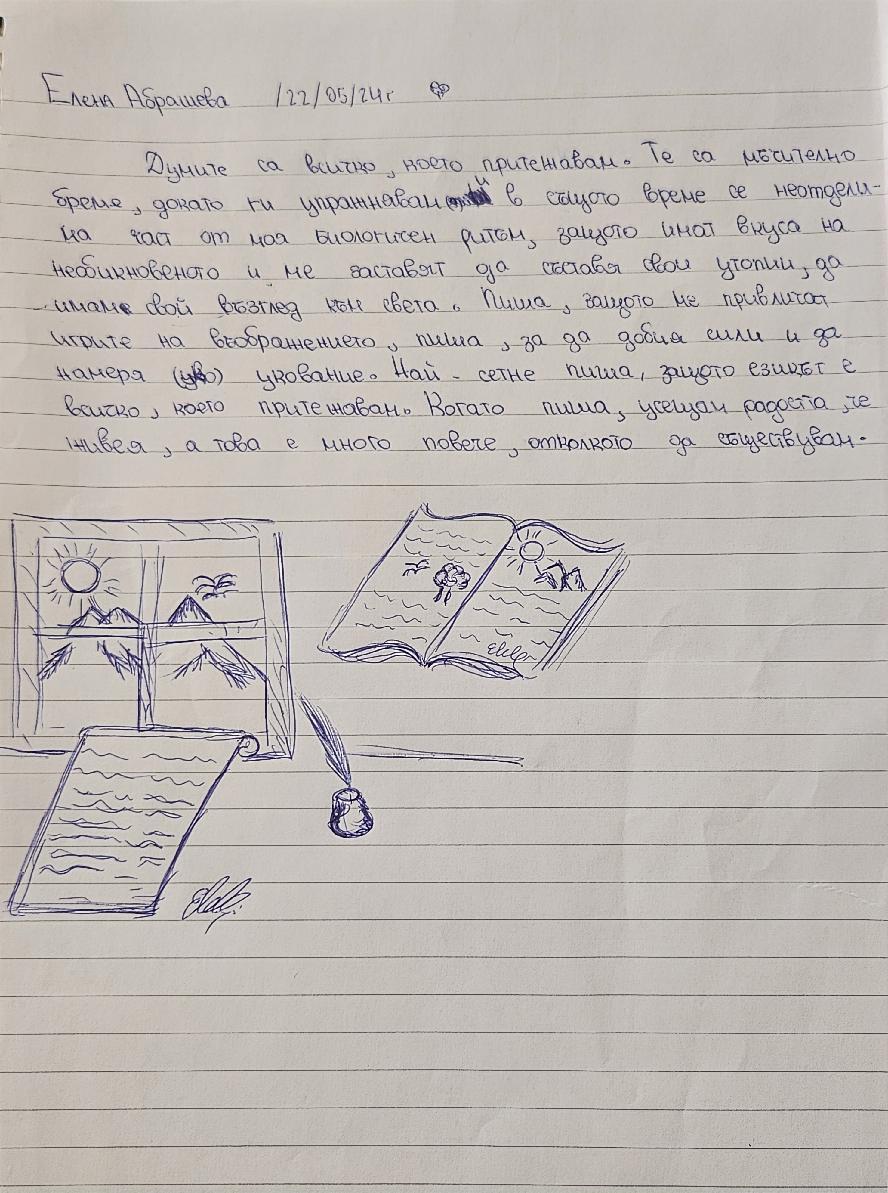 Елена Абрашева /22/05/24г
Думите са всичко, което притежавам. Те са мъчително
бреме, докато ги упражнявам и в същото време се неотдели-
ма част от моя биологичен ритъм, защото имат вкуса на
необикновеното и ме заставят да съставя свои утопии, да
имаме свой възглед към света. Пиша, защото ме привличат
игрите на въображението, пиша, за да добия сили и да
намеря упование. Най-сетне пиша, защото езикът е
всичко, което притежавам. Когато пиша, усещам радостта, че
живея, а това е много повече, отколкото да съществувам.